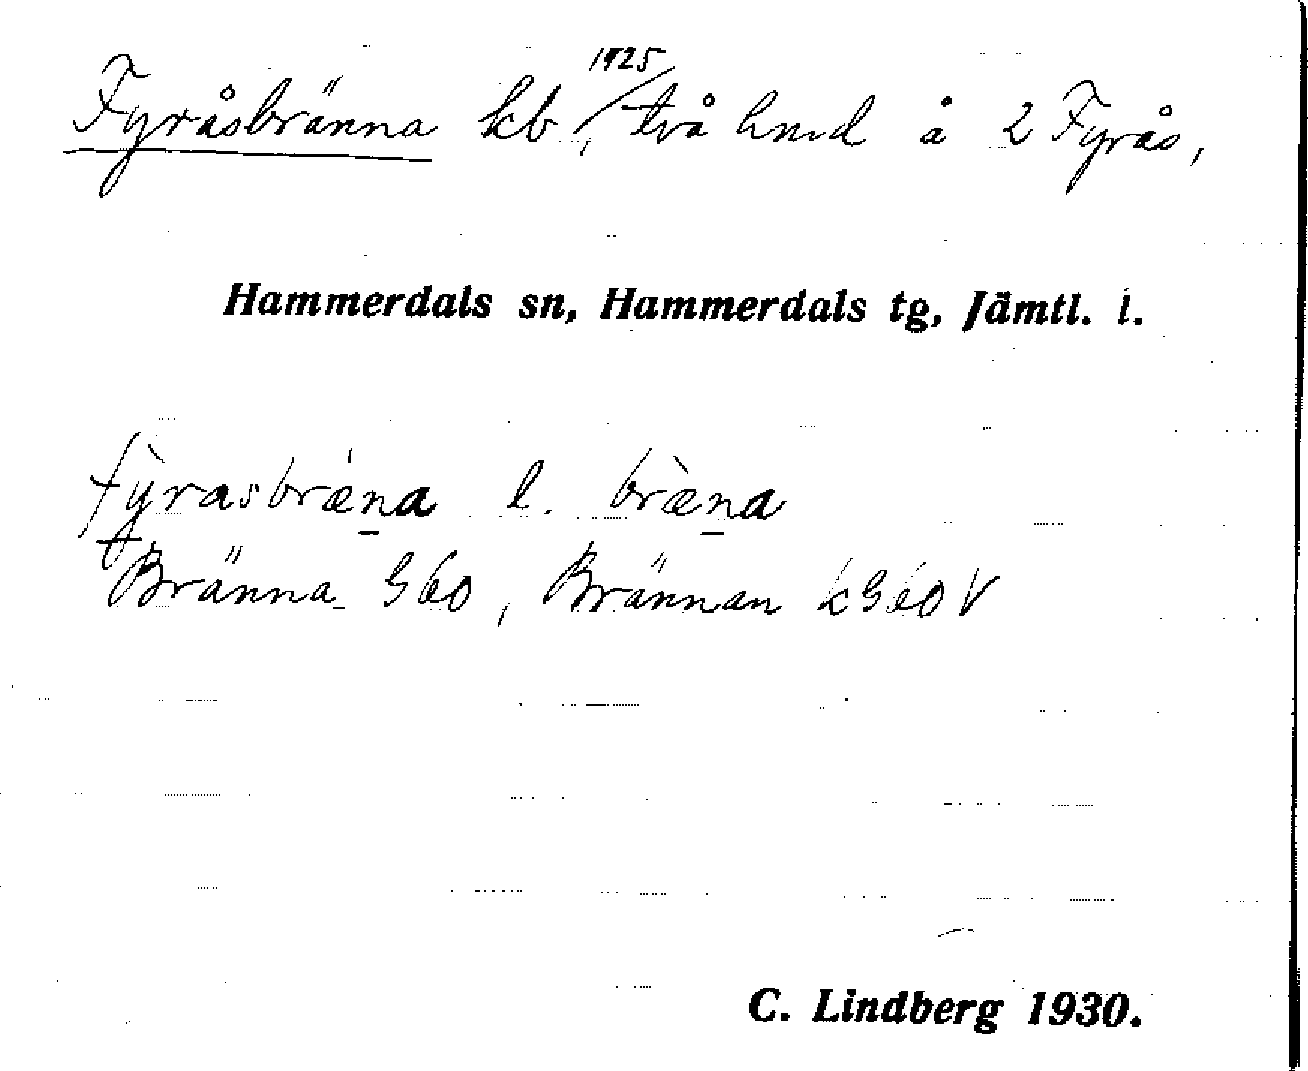 Fyråsbränna kb, 1925 två hmd å 2 Fyrås,
Hammerdals sn, Hammerdals tg, Jämtl. l.
fy̠rasbræ̀n̠a l. bræ̀n̠a
Bränna G60, Brännan kG60V
C. Lindberg 1930.